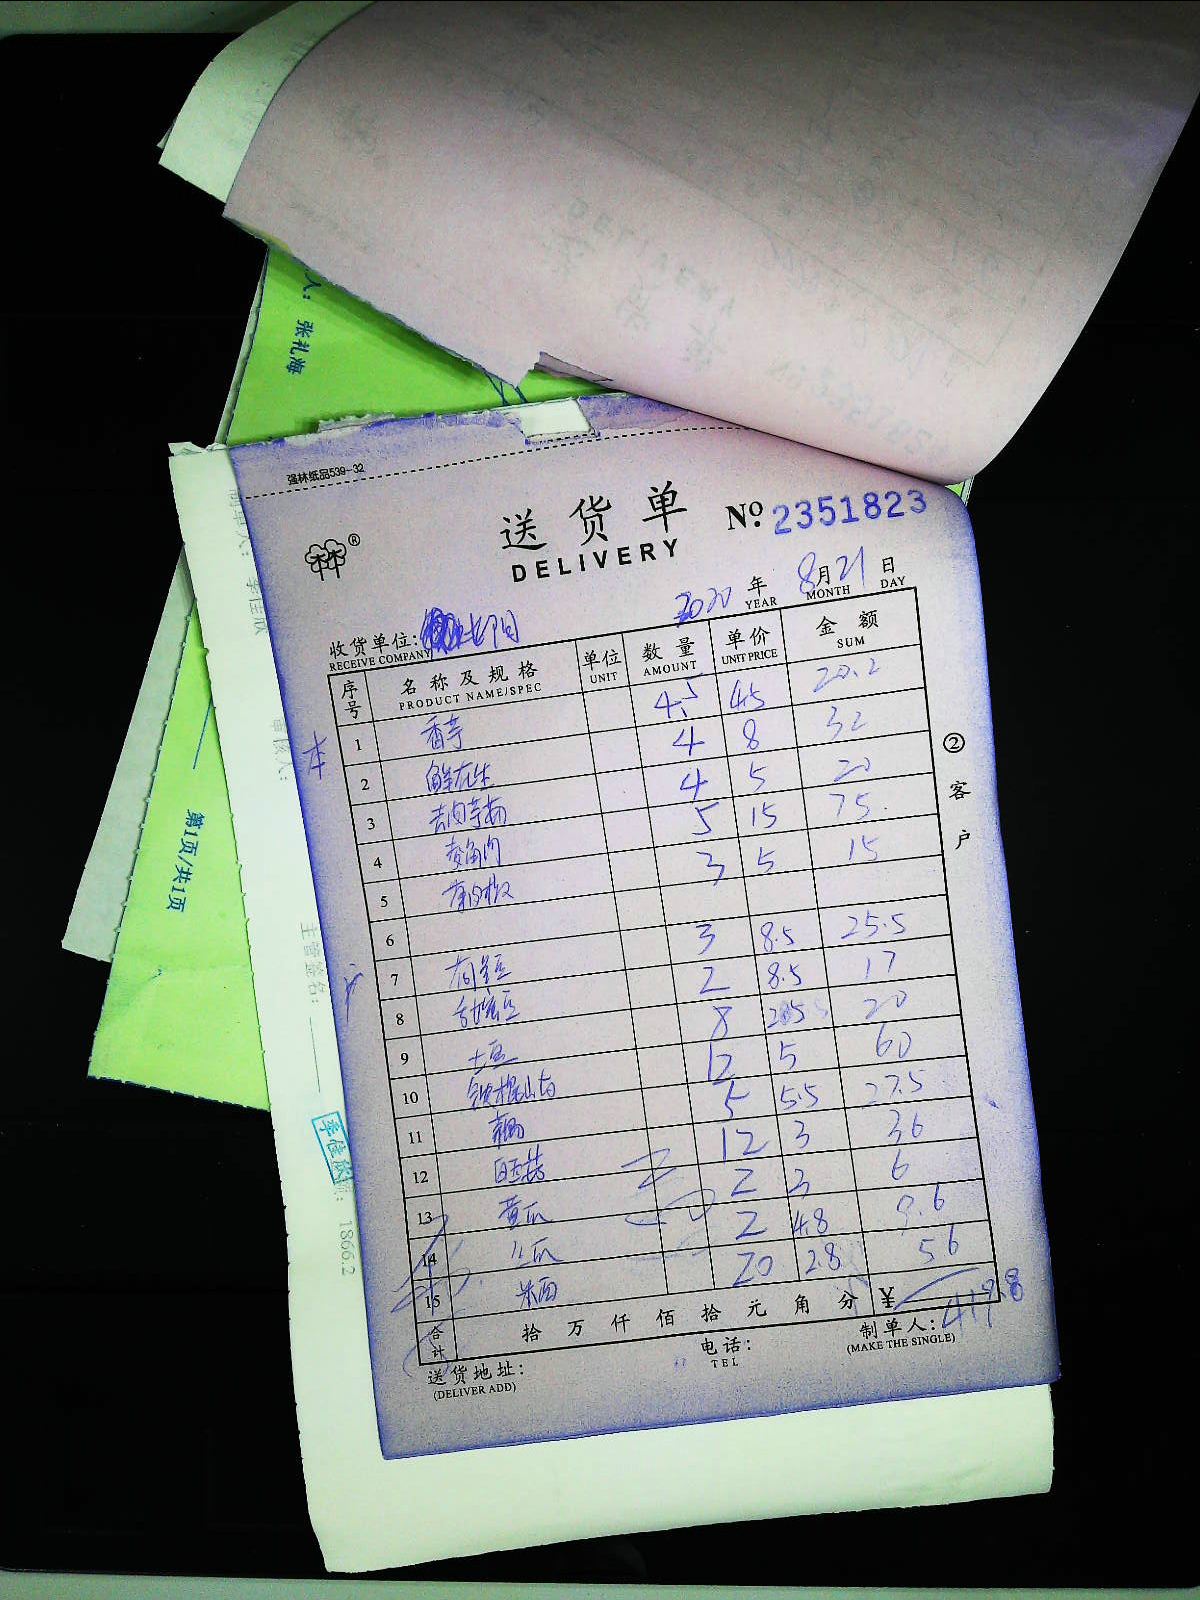 人: 张礼海
强林纸品539-32
送货单
DELIVERY
№ 2351823
2020 年 8月 21 日
YEAR MONTH DAY
收货单位:
RECEIVE COMPANY
序号 名称及规格 单位 数量 单价 金额
PRODUCT NAME/SPEC UNIT AMOUNT UNIT PRICE SUM
1 香芋 4.5 4.5 20.2
2 鲜花生 4 8 32
3 4 5 20
4 菱角肉 5 15 75.
5 3 5 15
6
7 3 8.5 25.5
8 2 8.5 17
9 土豆 8 2.5 20
10 铁棍山药 12 5 60
11 5 5.5 27.5
12 12 3 36
13 黄瓜 2 3 6
14 2 4.8 9.6
15 米面 20 2.8 56
合计 拾 万 仟 佰 拾 元 角 分 ¥ 419.8
送货地址:
(DELIVER ADD)
电话:
TEL
制单人:
(MAKE THE SINGLE)
② 客户
第1页/共1页
李佳欣
审核人:
主管签名:
李佳欣
1866.2